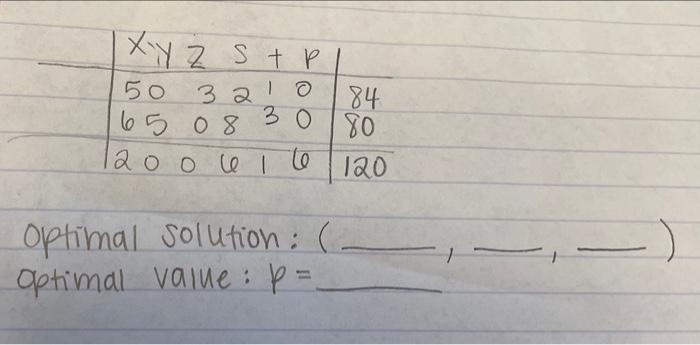 X y Z S t P
5 0 3 2 1 0 84
6 5 0 8 3 0 80
2 0 0 6 1 6 120
optimal solution: ( ____, ____, ____ )
optimal value: p = ____